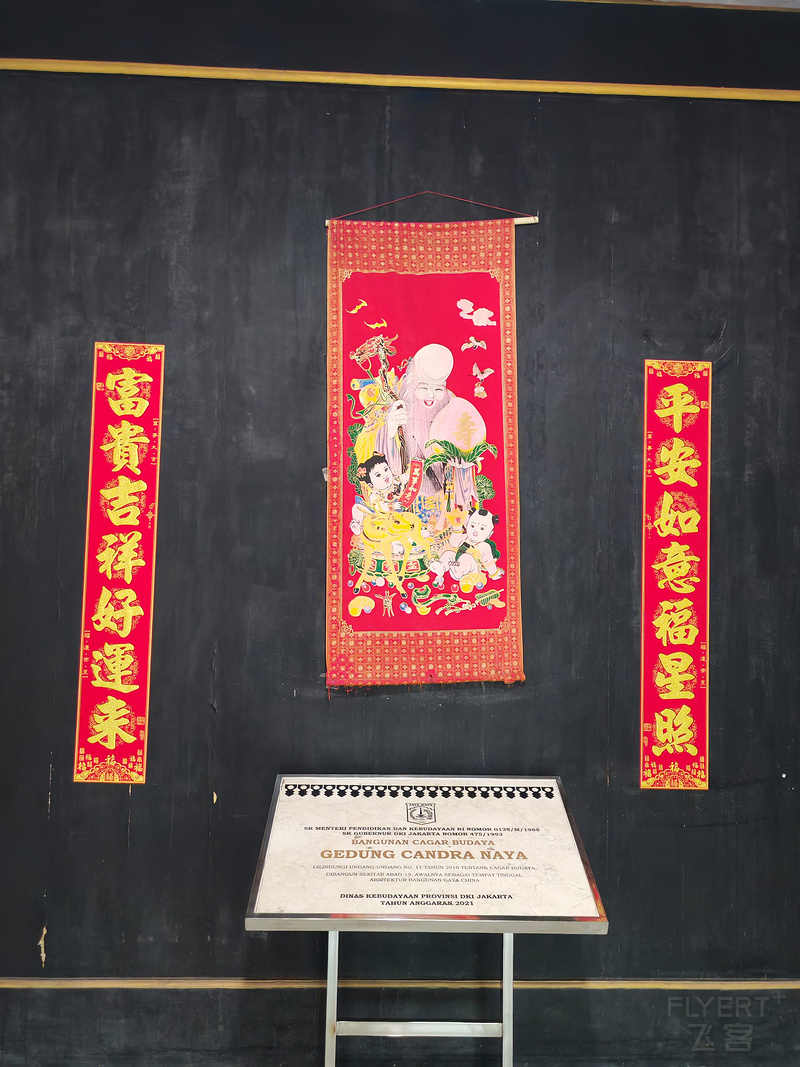 富貴吉祥好運来
平安如意福星照
寿
SK MENTERI PENDIDIKAN DAN KEBUDAYAAN RI NOMOR 0128/M/1988
SK GUBERNUR DKI JAKARTA NOMOR 475/1993
BANGUNAN CAGAR BUDAYA
GEDUNG CANDRA NAYA
DILINDUNGI UNDANG-UNDANG NO. 11 TAHUN 2010 TENTANG CAGAR BUDAYA.
DIBANGUN SEKITAR ABAD 19, AWALNYA SEBAGAI TEMPAT TINGGAL
ARSITEKTUR BANGUNAN GAYA CHINA
DINAS KEBUDAYAAN PROVINSI DKI JAKARTA
TAHUN ANGGARAN 2021
FLYERT
飞客